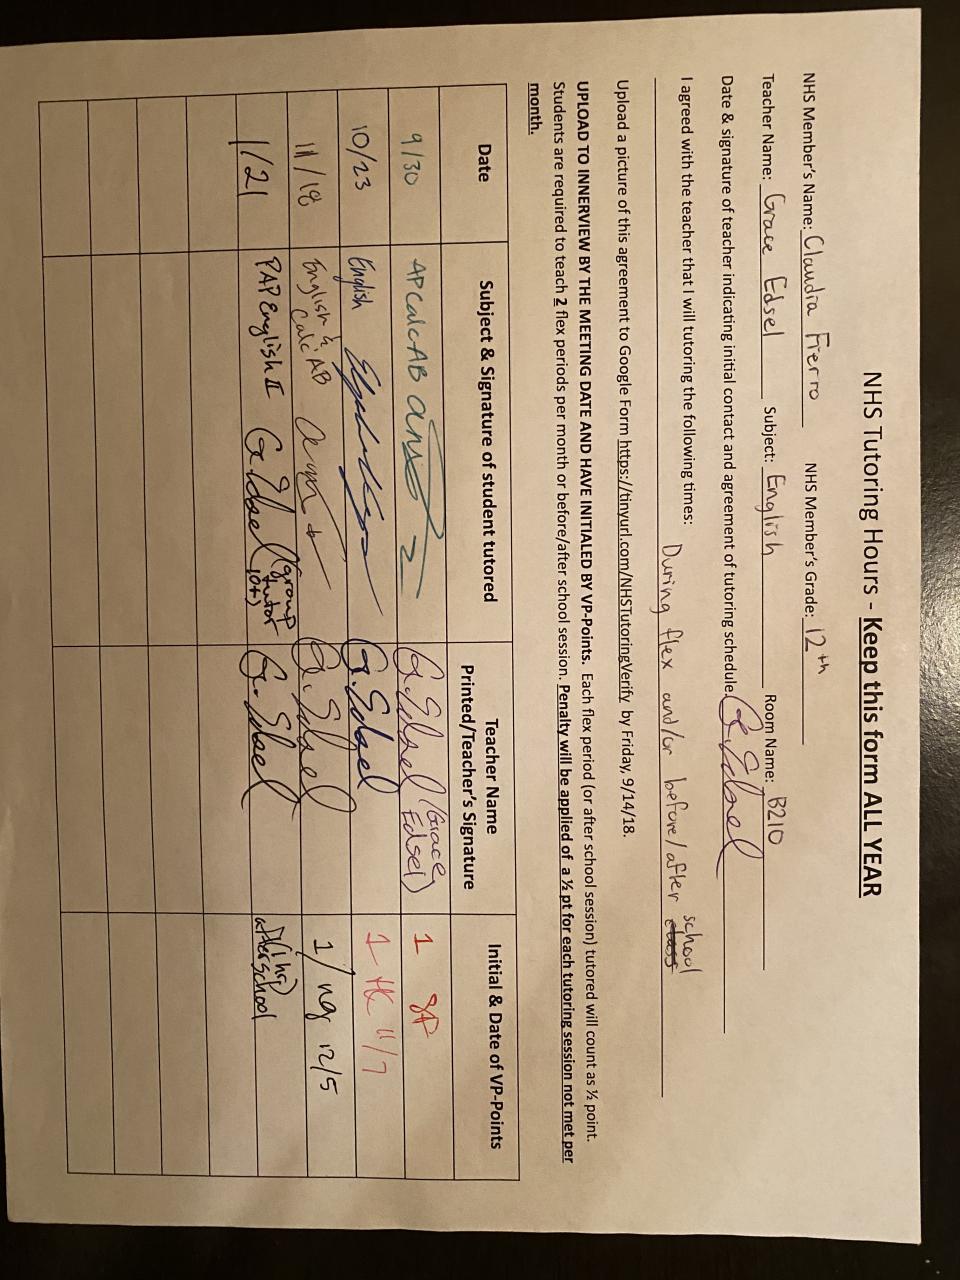 NHS Tutoring Hours - Keep this form ALL YEAR
NHS Member's Name: Claudia Fierro NHS Member's Grade: 12th
Teacher Name: Grace Edsel Subject: English Room Name: B210
Date & signature of teacher indicating initial contact and agreement of tutoring schedule. G. Edsel
I agreed with the teacher that I will tutoring the following times: During flex and/or before/after school
Upload a picture of this agreement to Google Form https://tinyurl.com/NHSTutoringVerify by Friday, 9/14/18.
UPLOAD TO INNERVIEW BY THE MEETING DATE AND HAVE INITIALED BY VP-Points. Each flex period (or after school session) tutored will count as ½ point.
Students are required to teach 2 flex periods per month or before/after school session. Penalty will be applied of a ½ pt for each tutoring session not met per
month.
Date Subject & Signature of student tutored Teacher Name Printed/Teacher's Signature Initial & Date of VP-Points
9/30 AP Calc AB G. Edsel (Grace Edsel) 1 SP
10/23 English G. Edsel 1 HK 11/7
11/18 English & Calc AB G. Edsel 1/ng 12/5
1/21 PAP English II G. Edsel (group tutor 10+) G. Edsel (1 hr) afterschool